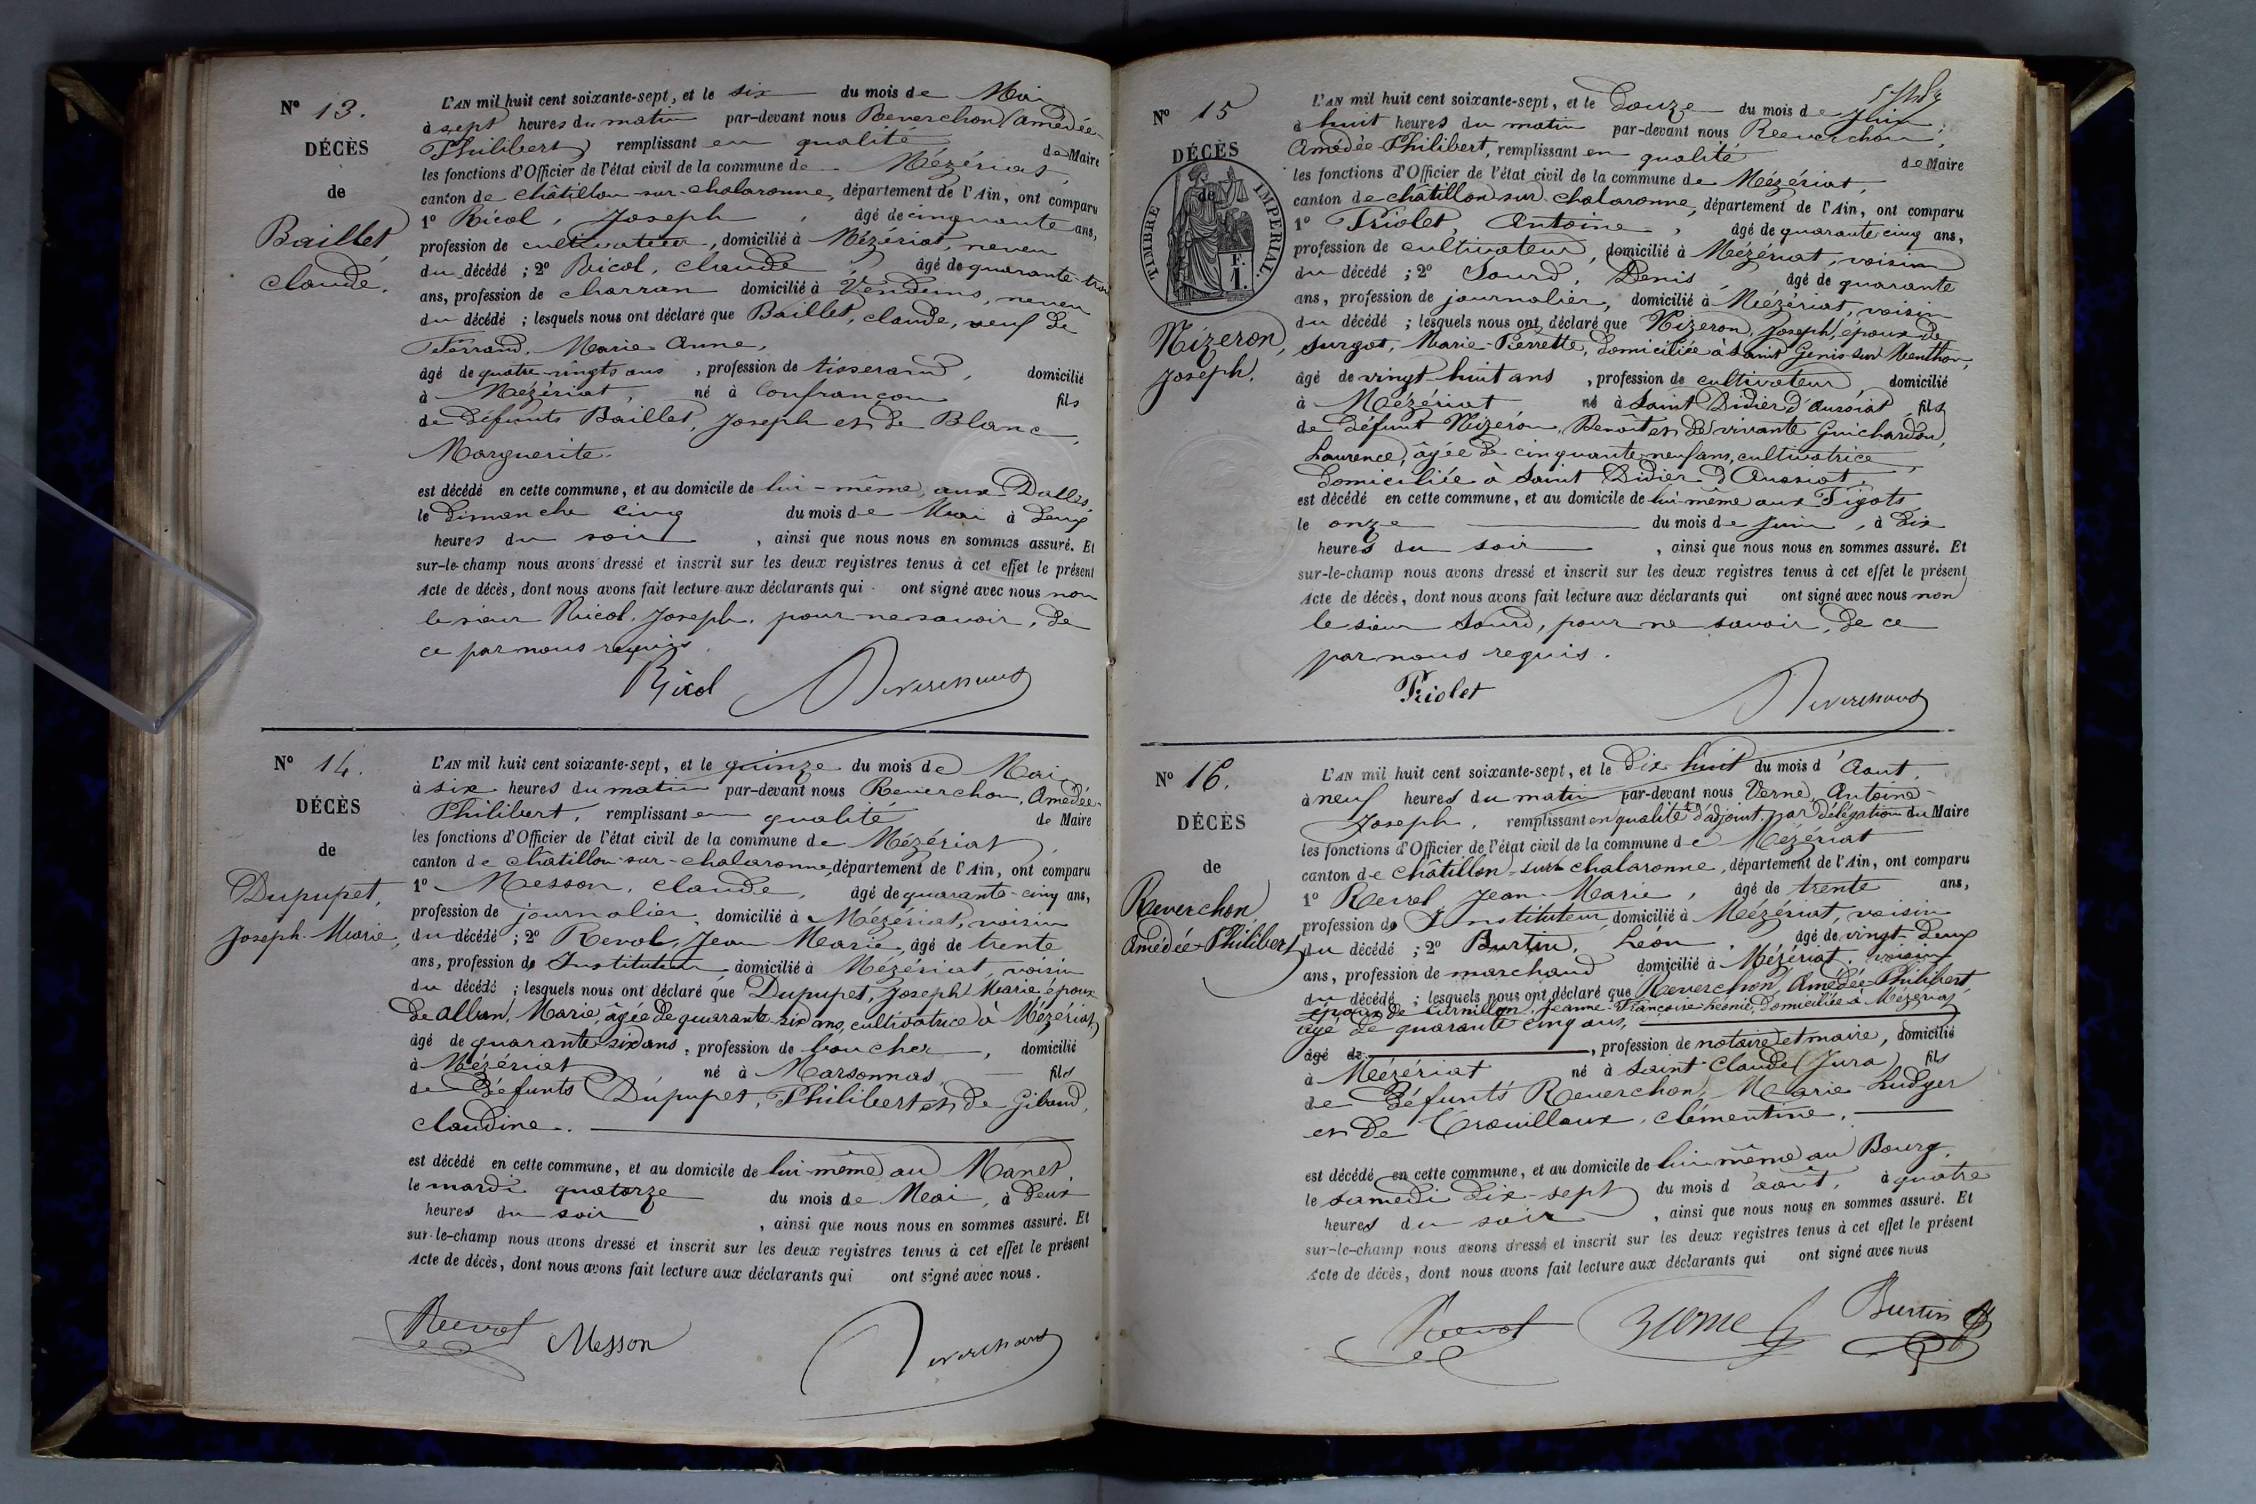 N° 13.
DÉCÈS
de
Baillet,
Claude.
L'AN mil huit cent soixante-sept, et le six du mois de Mai
à sept heures du matin par-devant nous Reverchon (Amédée-
Philibert) remplissant en qualité de Maire
les fonctions d'Officier de l'état civil de la commune de Mézériat,
canton de Châtillon-sur-Chalaronne, département de l'Ain, ont comparu
1° Ricol, Joseph, âgé de cinquante ans,
profession de cultivateur, domicilié à Mézériat, neveu
du décédé ; 2° Ricol, Claude, âgé de quarante-trois
ans, profession de charron domicilié à Vendeins, neveu
du décédé ; lesquels nous ont déclaré que Baillet, Claude, veuf de
Ferrand, Marie Anne,
âgé de quatre-vingts ans, profession de tisserand, domicilié
à Mézériat, né à Confrançon fils
de défunts Baillet, Joseph et de Blanc,
Marguerite.
est décédé en cette commune, et au domicile de lui-même, aux Dalles,
le dimanche cinq du mois de Mai à deux
heures du soir, ainsi que nous nous en sommes assuré. Et
sur-le-champ nous avons dressé et inscrit sur les deux registres tenus à cet effet le présent
Acte de décès, dont nous avons fait lecture aux déclarants qui ont signé avec nous non
le sieur Ricol, Joseph, pour ne savoir, de
ce par nous requis.
Ricol Reverchon
N° 14.
DÉCÈS
de
Dupupet,
Joseph-Marie,
L'AN mil huit cent soixante-sept, et le quinze du mois de Mai
à six heures du matin par-devant nous Reverchon, Amédée-
Philibert, remplissant en qualité de Maire
les fonctions d'Officier de l'état civil de la commune de Mézériat,
canton de Châtillon-sur-Chalaronne, département de l'Ain, ont comparu
1° Messon, Claude, âgé de quarante-cinq ans,
profession de journalier, domicilié à Mézériat, voisin
du décédé ; 2° Revol, Jean Marie, âgé de trente
ans, profession de Instituteur domicilié à Mézériat, voisin
du décédé ; lesquels nous ont déclaré que Dupupet, Joseph Marie époux
de Alban, Marie, âgée de quarante six ans, cultivatrice à Mézériat,
âgé de quarante six ans, profession de boucher, domicilié
à Mézériat né à Marsonnas, fils
de défunts Dupupet, Philibert et de Giband,
Claudine.
est décédé en cette commune, et au domicile de lui-même au Manet,
le mardi quatorze du mois de Mai, à deux
heures du soir, ainsi que nous nous en sommes assuré. Et
sur-le-champ nous avons dressé et inscrit sur les deux registres tenus à cet effet le présent
Acte de décès, dont nous avons fait lecture aux déclarants qui ont signé avec nous.
Revol Messon Reverchon
N° 15
DÉCÈS
de
TIMBRE IMPERIAL.
F.
1.
Nizeron,
Joseph.
L'AN mil huit cent soixante-sept, et le Douze du mois de Juin,
à huit heures du matin par-devant nous Reverchon,
Amédée-Philibert, remplissant en qualité de Maire
les fonctions d'Officier de l'état civil de la commune de Mézériat,
canton de Châtillon sur Chalaronne, département de l'Ain, ont comparu
1° Triolet, Antoine, âgé de quarante cinq ans,
profession de cultivateur, domicilié à Mézériat, voisin
du décédé ; 2° Sourd, Denis, âgé de quarante
ans, profession de journalier, domicilié à Mézériat, voisin
du décédé ; lesquels nous ont déclaré que Nizeron, Joseph, époux de
Surgot, Marie-Pierrette, domiciliée à Saint Genis sur Menthon,
âgé de vingt-huit ans, profession de cultivateur, domicilié
à Mézériat né à Saint Didier d'Aussiat fils
de défunt Nizeron, Benoît et de vivante Guichardon,
Laurence, âgée de cinquante-neuf ans, cultivatrice,
domiciliée à Saint Didier d'Aussiat,
est décédé en cette commune, et au domicile de lui-même aux Tigots,
le onze du mois de Juin, à dix
heures du soir, ainsi que nous nous en sommes assuré. Et
sur-le-champ nous avons dressé et inscrit sur les deux registres tenus à cet effet le présent
Acte de décès, dont nous avons fait lecture aux déclarants qui ont signé avec nous non
le sieur Sourd, pour ne savoir, de ce
par nous requis.
Triolet Reverchon
N° 16.
DÉCÈS
de
Reverchon,
Amédée-Philibert
L'AN mil huit cent soixante-sept, et le dix-huit du mois d'Aout,
à neuf heures du matin par-devant nous Verne, Antoine-
Joseph, remplissant en qualité d'adjoint, par délégation du Maire
les fonctions d'Officier de l'état civil de la commune de Mézériat
canton de Châtillon-sur-Chalaronne, département de l'Ain, ont comparu
1° Revol, Jean-Marie, âgé de trente ans,
profession de Instituteur domicilié à Mézériat, voisin
du décédé ; 2° Burtin, Léon, âgé de vingt-deux
ans, profession de marchand domicilié à Mézériat, voisin
du décédé ; lesquels nous ont déclaré que Reverchon, Amédée-Philibert
époux de Jeanne-Françoise-Léonie, domiciliée à Mézériat,
âgé de quarante cinq ans,
âgé de, profession de notaire et maire, domicilié
à Mézériat né à Saint-Claude (Jura) fils
de défunts Reverchon, Marie-Ludger
et de Trouillaux, Clémentine.
est décédé en cette commune, et au domicile de lui-même au Bourg,
le samedi dix-sept du mois d'août, à quatre
heures du soir, ainsi que nous nous en sommes assuré. Et
sur-le-champ nous avons dressé et inscrit sur les deux registres tenus à cet effet le présent
Acte de décès, dont nous avons fait lecture aux déclarants qui ont signé avec nous
Revol Verne Burtin